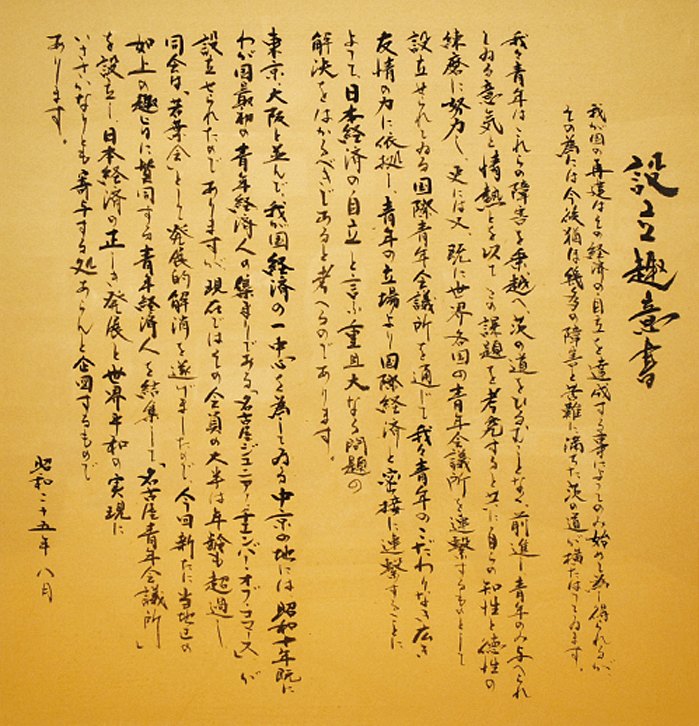 設立趣意書
我が国の再建はその経済の自立を達成する事によってのみ始めて為し得られるが
その為には今後猶ほ幾多の障害と苦難に満ちた茨の道が横たはってゐます。
我々青年はこれらの障害を乗越へ茨の道をひるむことなく前進し青年のみ与へられ
してゐる意気と情熱とを以てこの課題を考究すると共に自らの知性と徳性の
練磨に努力し、更には又、既に世界各国の青年会議所を連繋するものとして
設立せられてゐる国際青年会議所を通じて我々青年のこだわりなき広き
友情の力に依拠し、青年の立場より国際経済と密接に連繋することに
よって、日本経済の自立と言ふ重且大なる問題の
解決をはかるべきであると考へるのであります。
東京、大阪と並んで我が国経済の一中心を為してゐる中京の地には昭和十年既に
わが国最初の青年経済人の集まりである、「名古屋ジュニアー・チェンバー・オブ・コマース」が
設立せられたのでありますが、現在ではその会員の大半は年齢も超過し
同会は、「若葉会」として発展的解消を遂げましたので、今回新たに当地区の
如上の趣旨に賛同する青年経済人を結集して、「名古屋青年会議所」
を設立し、日本経済の正しき発展と世界平和の実現に
いささかなりとも寄与する処あらんと企図するもので
あります。
昭和二十五年八月